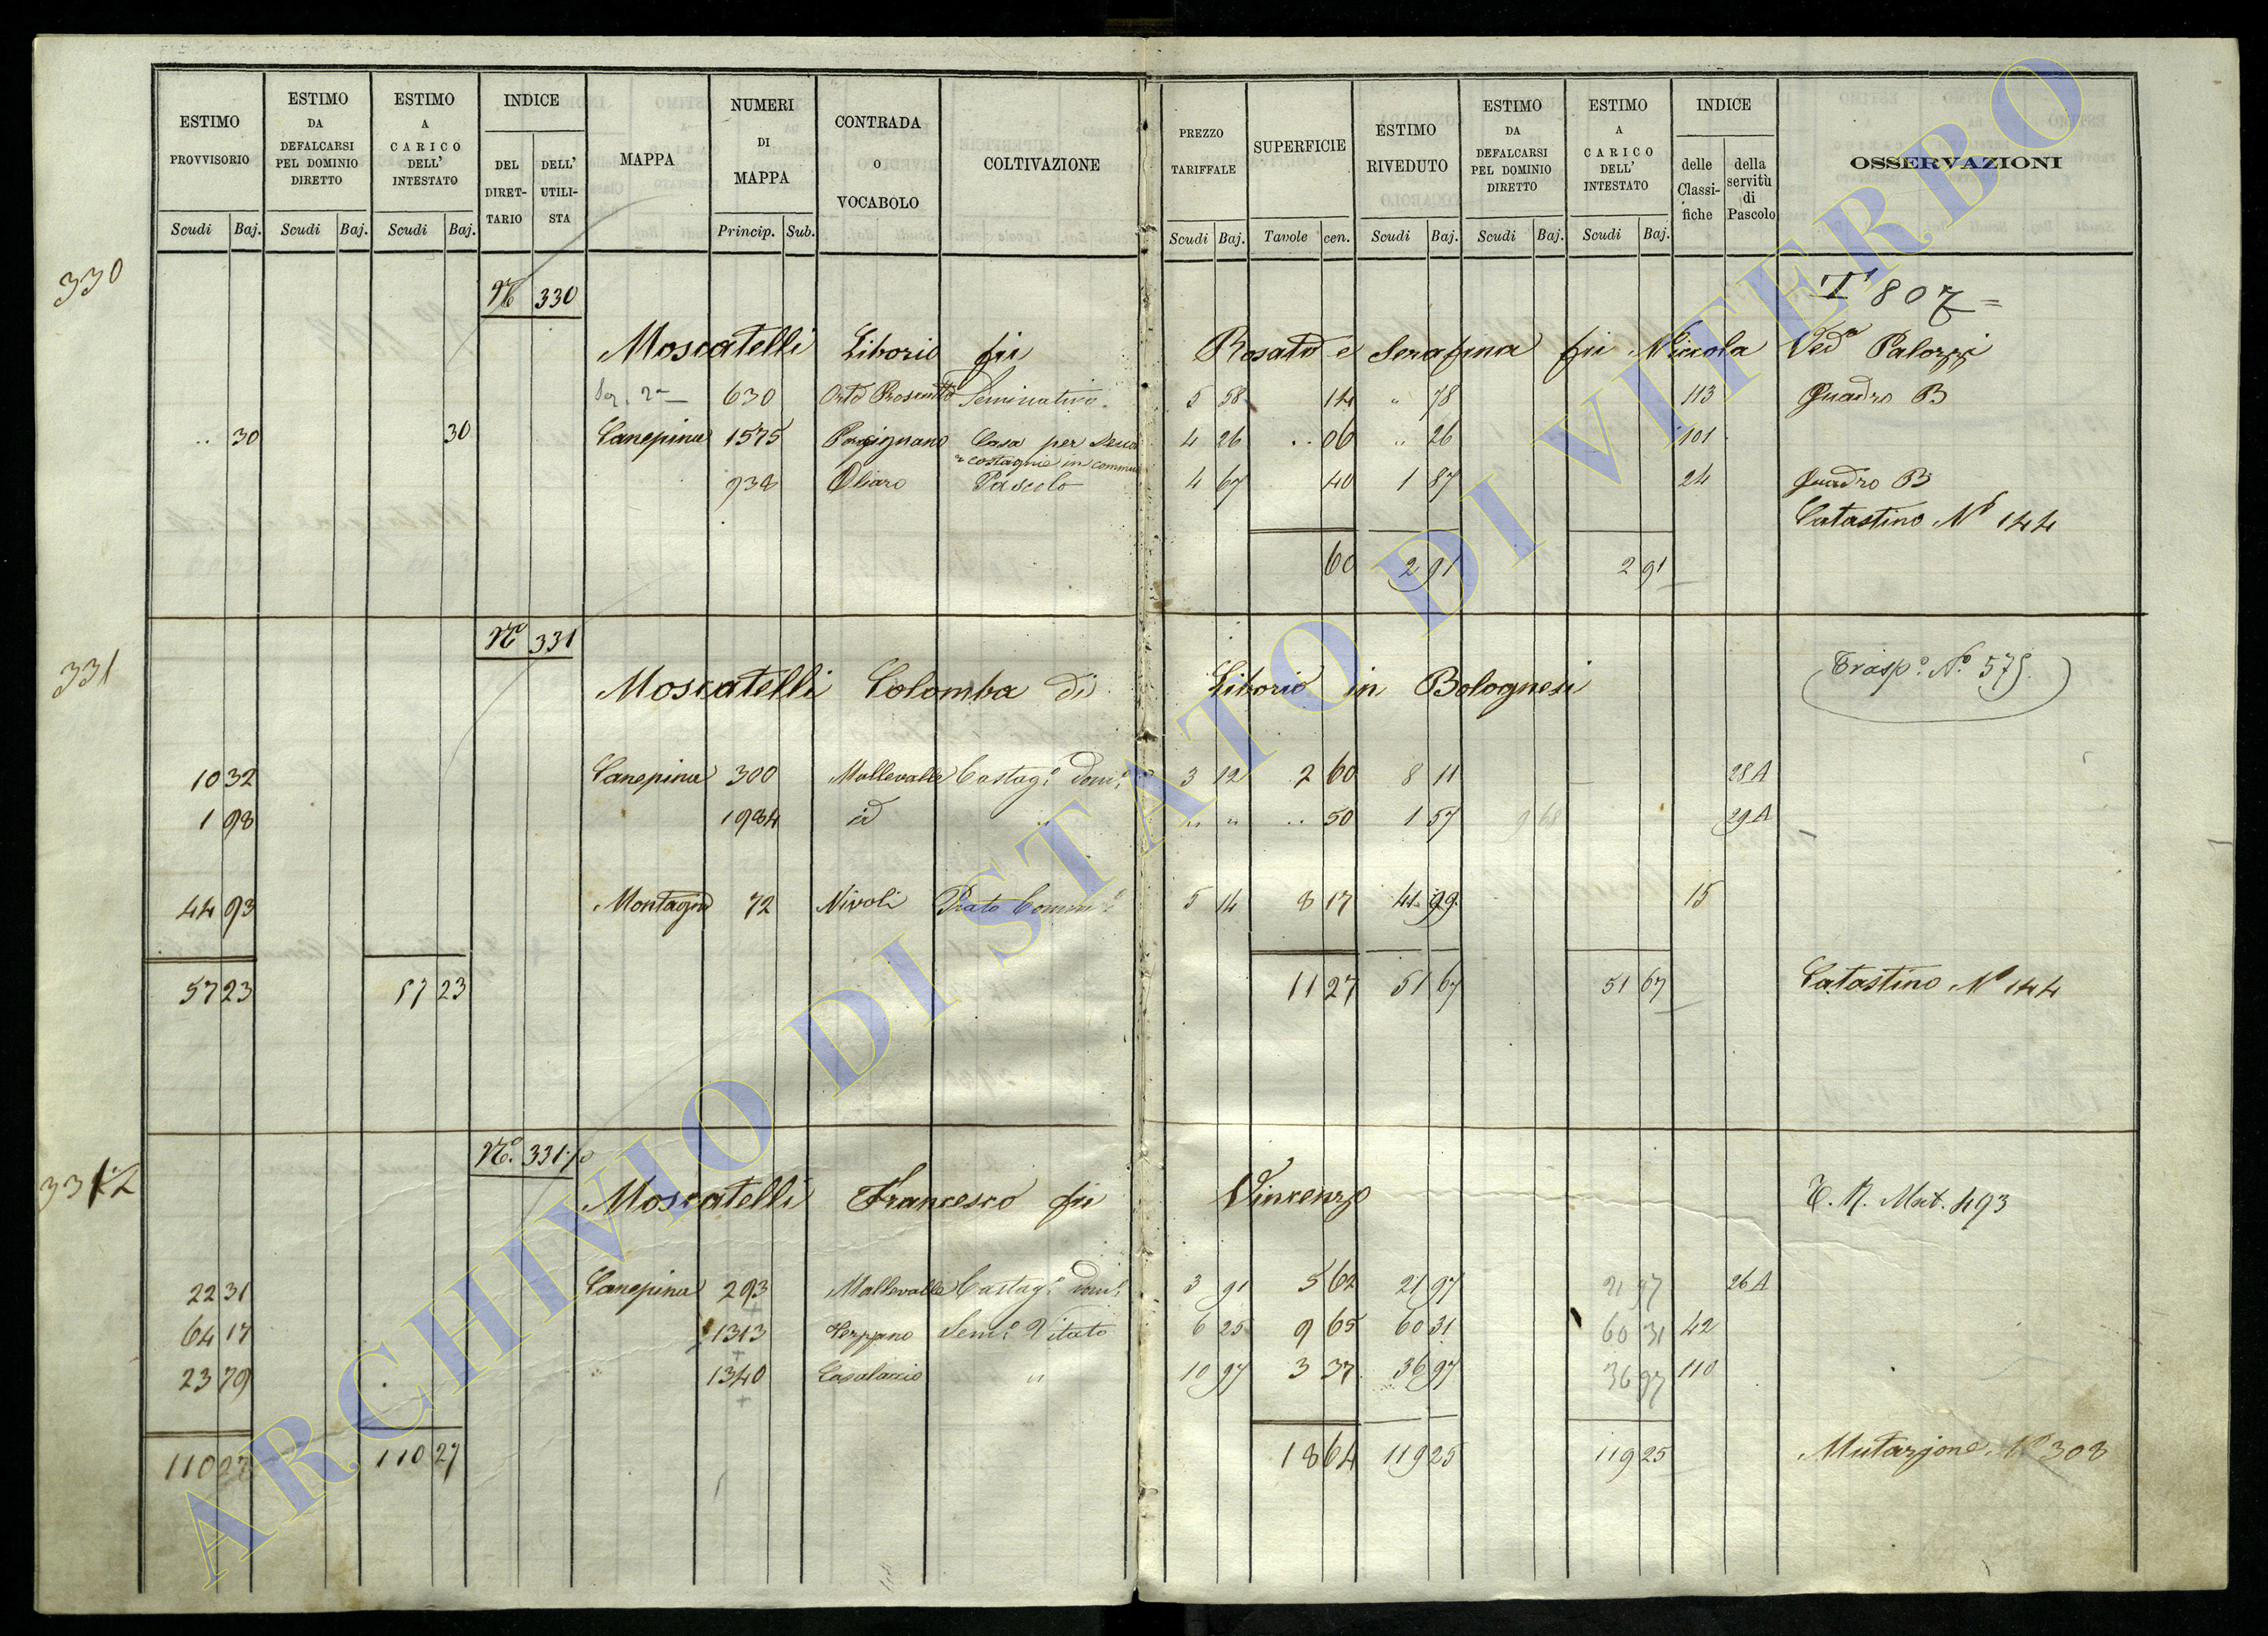 ESTIMO PROVVISORIO | ESTIMO DA DEFALCARSI PEL DOMINIO DIRETTO | ESTIMO A CARICO DELL' INTESTATO | INDICE DEL DIRET-TARIO | DELL' UTILI-STA | MAPPA | NUMERI DI MAPPA | CONTRADA o VOCABOLO | COLTIVAZIONE | PREZZO TARIFFALE | SUPERFICIE | ESTIMO RIVEDUTO | ESTIMO DA DEFALCARSI PEL DOMINIO DIRETTO | ESTIMO A CARICO DELL' INTESTATO | INDICE delle Classi-fiche | della servitù di Pascolo | OSSERVAZIONI
Scudi Baj. Scudi Baj. Scudi Baj. Princip. Sub. Scudi Baj. Tavole cen. Scudi Baj. Scudi Baj. Scudi Baj.
330 No 330 T 807 =
Moscatelli Liborio fu Rosato e Serafina fu Niccola Ved.a Palozzi
Sez. 2a 630 Orto Seminativo 5 58 14 " 78 113 Quadro B
.. 30 30 Canepina 1575 Casa per 4 26 .. 06 " 26 101
castagnie in
938 Oliaro Pascolo 4 67 40 1 87 24 Quadro B
Catastino No 144
60 2 91 2 91
331 No 331
Moscatelli Colomba di Liborio in Bolognesi Trasp.o No. 575.
10 32 Canepina 300 Mallevalle Castag.o dom.o 3 12 2 60 8 11 28A
1 98 1984 id " " " .. 50 1 57 9 68 29A
44 93 Montagna 72 Nivoli Prato 5 14 8 17 41 99 15
57 23 57 23 11 27 51 67 51 67 Catastino No 144
No. 331
Moscatelli Francesco fu Vincenzo T. N. Mut. 493
22 31 Canepina 293 Mallevalle Castag.o dom.o 3 91 5 62 21 97 21 97 26A
64 17 1313 Sem.o Vitato 6 25 9 65 60 31 60 31 42
23 79 " 1340 Casalaccio " 10 97 3 37 36 97 36 97 110
110 27 110 27 18 64 119 25 119 25 Mutazione No 308
ARCHIVIO DI STATO DI VITERBO